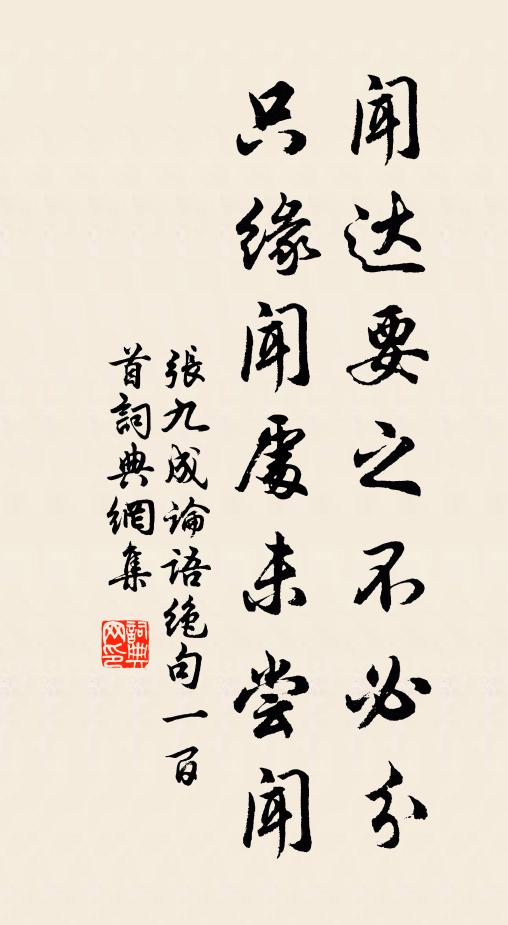 闻达要之不必分
只缘闻處未尝闻
張九成論语绝句一百
首詞典網集
詞典网印